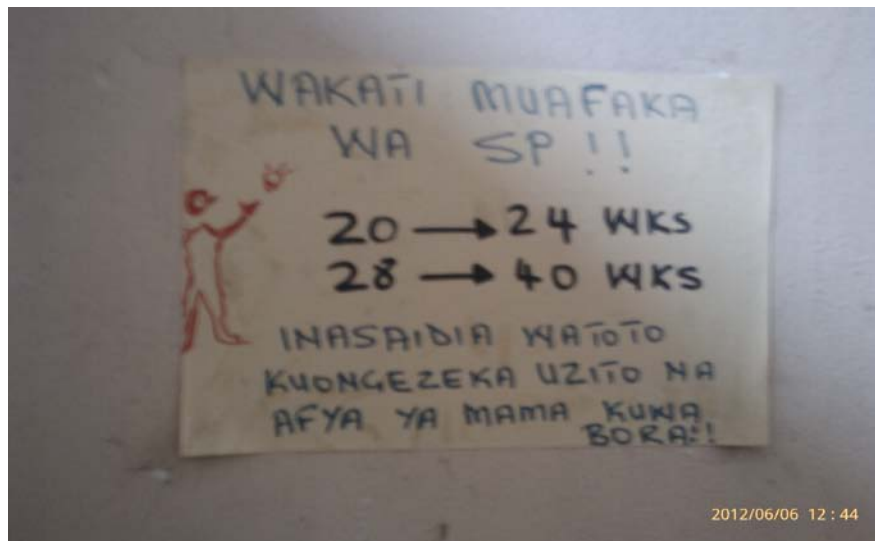 WAKATI MUAFAKA
WA SP!!
20 → 24 WKS
28 → 40 WKS
INASAIDIA WATOTO
KUONGEZEKA UZITO NA
AFYA YA MAMA KUWA
BORA!!
2012/06/06 12:44